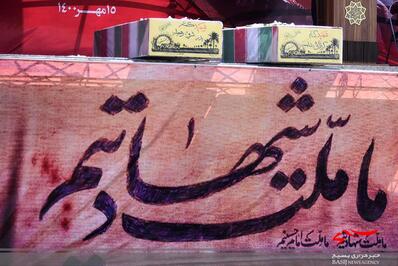 ۱۵مهر۱۴۰۰
شهید گمنام
ما ملّت شهادتیم
ما ملت شهادتیم ما ملت امام حسینیم
خبرگزاری بسیج
BASIJ NEWS AGENCY